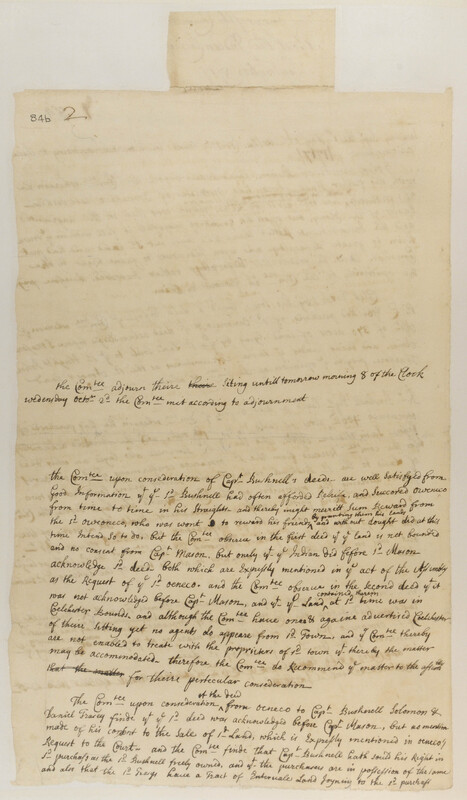 84b 2
the Com:tee adjourn theire their siting untill tomorrow morning 8 of the Clock
wedensday octo:r 2:d the Com:tee met according to adjournment
the Com:tee upon consideration of Cap:t Bushnell's deeds are well satisfied from
Good Information y:t y:e s:d Bushnell had often afforded Releiv and Succored oweneco
from time to time in his Straights and thereby might merrit Sum Reward from
the s:d oweoneco, who was wont to reward his friends by granting them his lands and without dought did at this
time Intend so to do: but the Com:tee observe in the first deed y:t y:e land is not bounded
and no consent from Cap:t Mason, but onely y:t y:e Indian did before s:d Mason
acknowledge s:d deed both which are Expresly mentioned in y:e act of the Assembly
as the Request of y:e s:d oeneco. and the Com:tee observe in the second deed y:t it
was not acknowledged before Cap:t Mason, and y:t y:e Land contained therein at s:d time was in
Colchester Bounds. and although the Com:tee have ones & againe advertised Colchester
of theire sitting yet no agents do appeare from s:d Town, and y:e Com:tee thereby
are not enabled to treate with the propriators of s:d town y:t thereby the matter
may be accommodated therefore the Com:tee do Recommend y:e matter to the assembly
that the matter for theire perticular consideration
The Com:tee upon consideration of the deed from oeneco to Cap:t Bushnell Solomon &
Daniel Tracey finde y:t y:e s:d deed was acknowledged before Cap:t Mason, but no mention
made of his consent to the sale of s:d Land, which is Expresly mentioned in oeneco's
Request to the Court - and the Com:tee finde that Cap:t Bushnell hath sould his Right in
s:d purchass as the s:d Bushnell freely owned, and y:t the purchasers are in possession of the same
and also that the s:d Traceys have a Tract of Entervale Land joyning to the s:d purchass